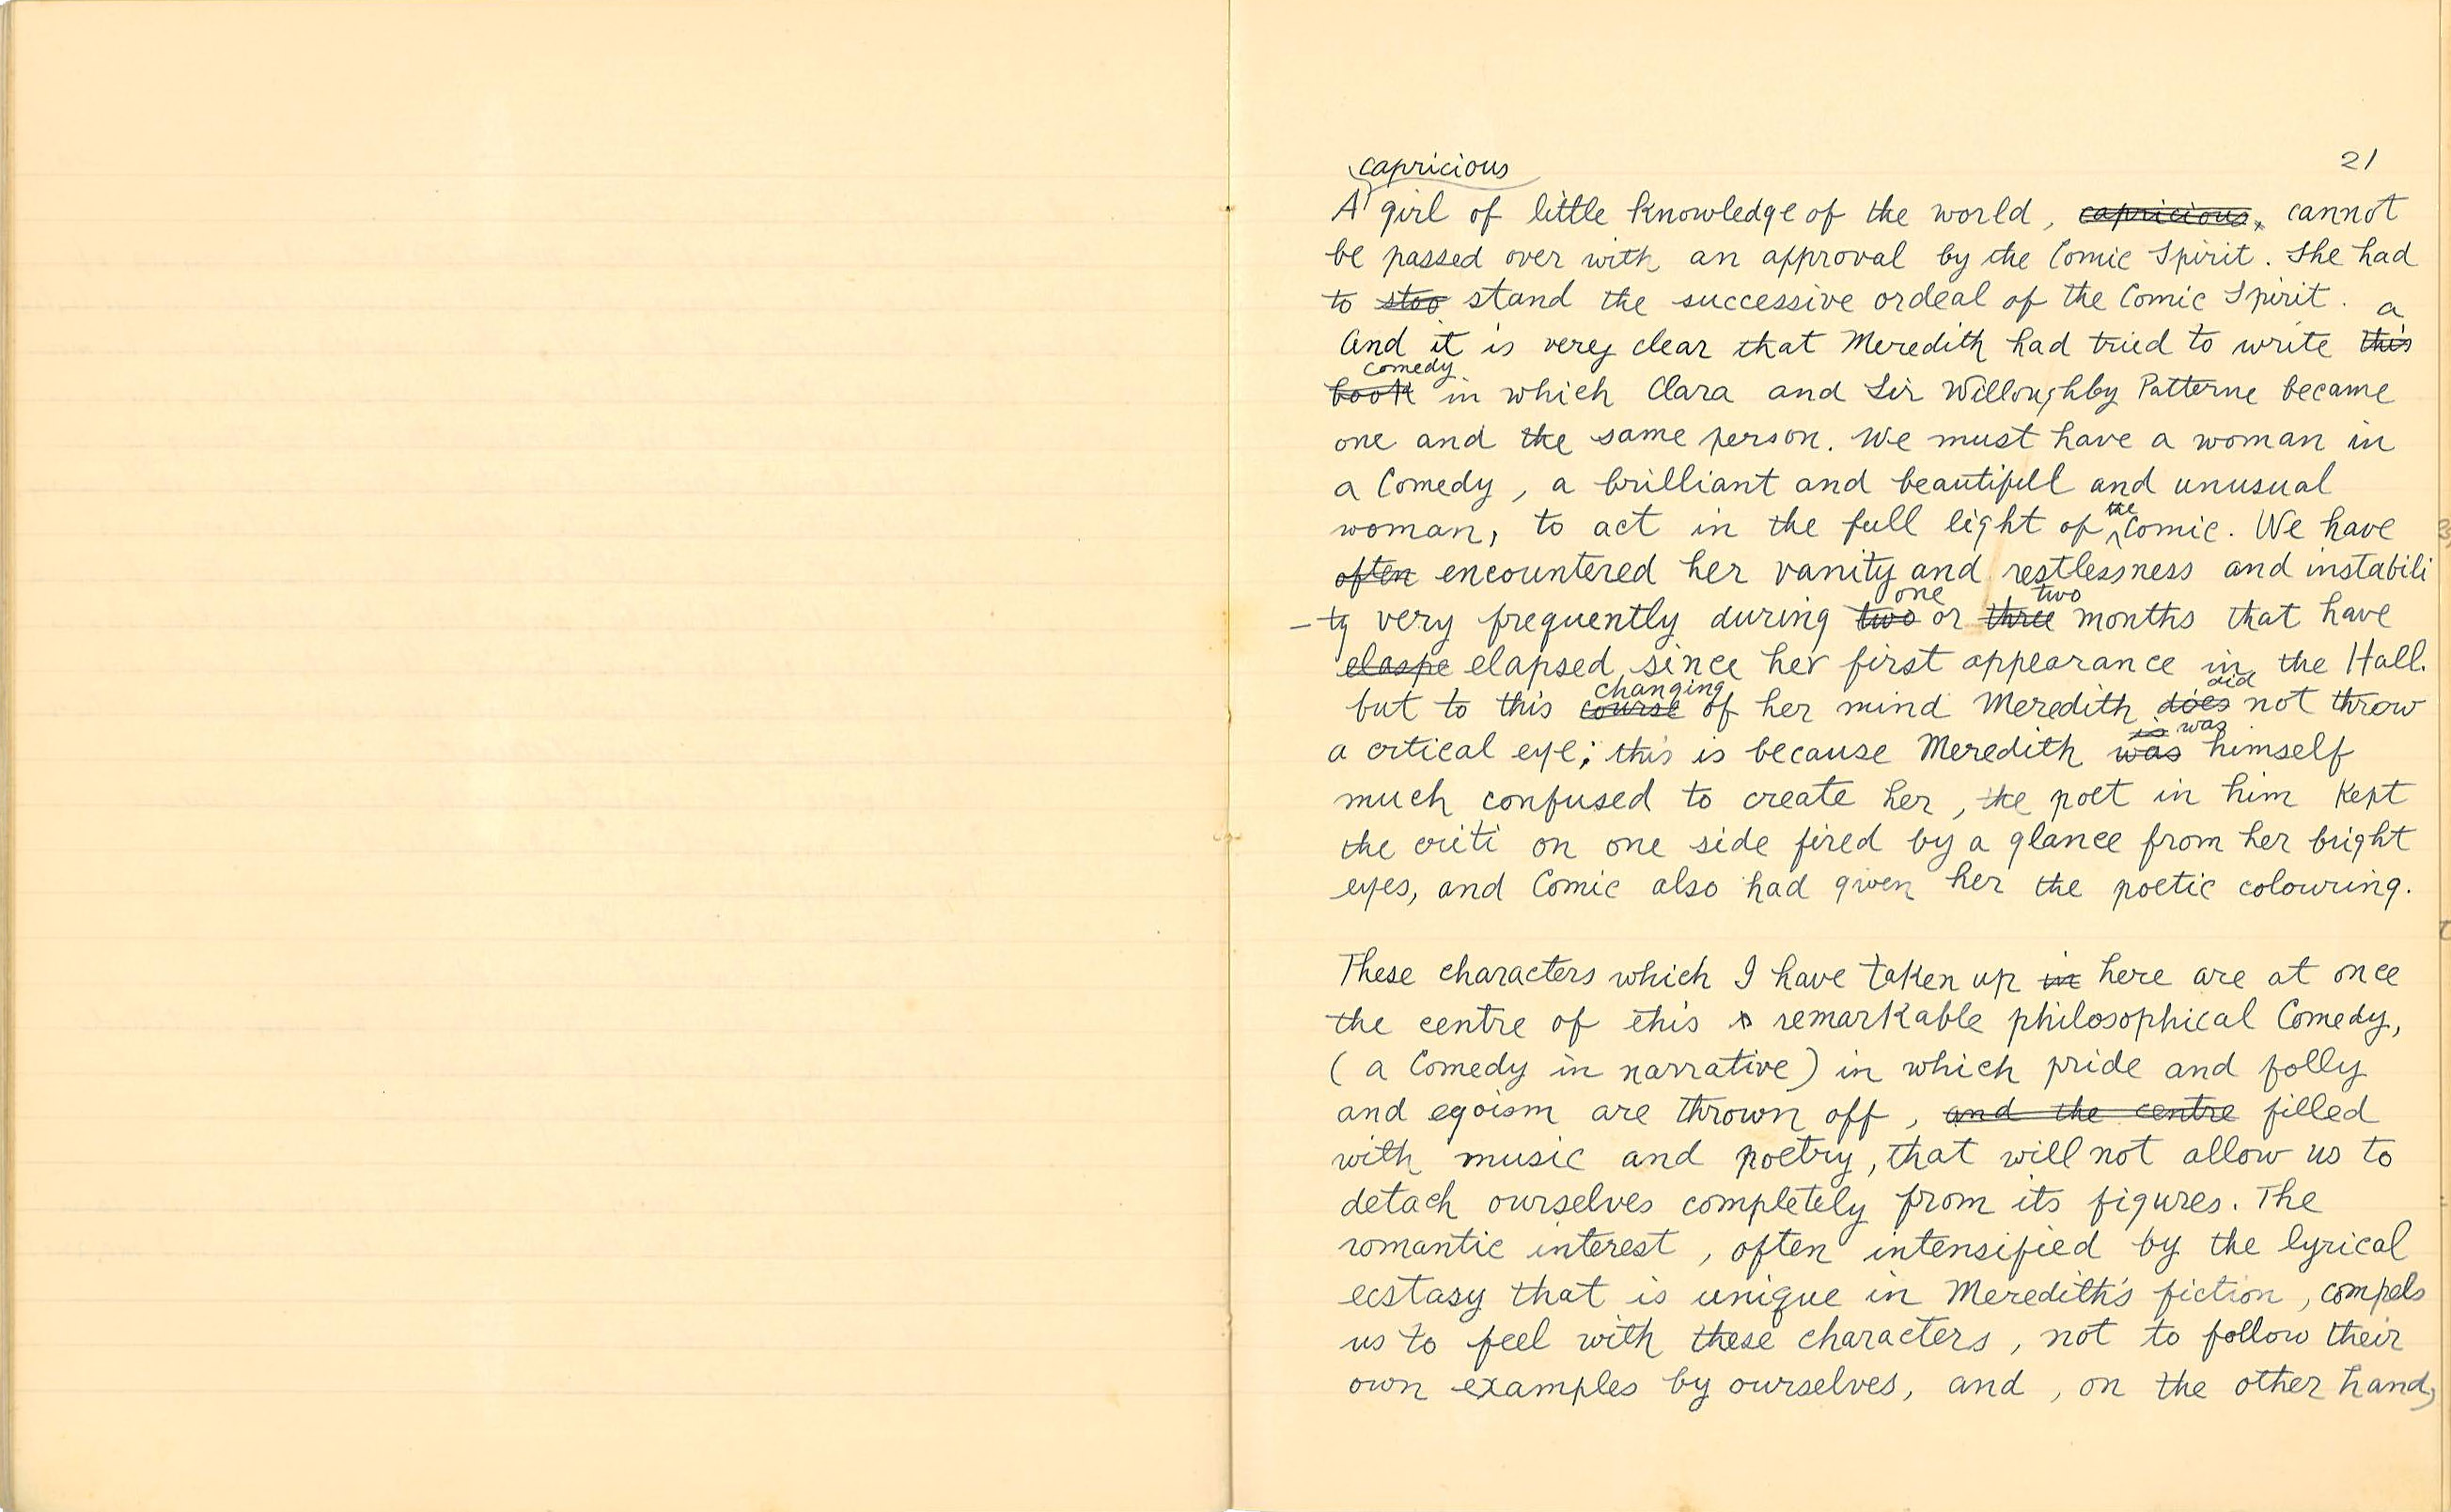 21
capricious
A girl of little knowledge of the world, capricious, cannot
be passed over with an approval by the Comic Spirit. She had
to stoo stand the successive ordeal of the Comic Spirit.
a
And it is very clear that Meredith had tried to write this
comedy
book in which Clara and Sir Willoughby Patterne became
one and the same person. We must have a woman in
a Comedy, a brilliant and beautifull and unusual
the
woman, to act in the full light of Comic. We have
often encountered her vanity and restlessness and instabili
one two
-ty very frequently during two or three months that have
elaspe elapsed since her first appearance in the Hall.
changing did
but to this course of her mind Meredith does not throw
is was
a crtical eye; this is because Meredith was himself
much confused to create her, the poet in him kept
the criti on one side fired by a glance from her bright
eyes, and Comic also had given her the poetic colouring.
These characters which I have taken up in here are at once
the centre of this remarkable philosophical Comedy,
( a Comedy in narrative) in which pride and folly
and egoism are thrown off, and the centre filled
with music and poetry, that will not allow us to
detach ourselves completely from its figures. The
romantic interest, often intensified by the lyrical
ecstasy that is unique in Meredith's fiction, compels
us to feel with these characters, not to follow their
own examples by ourselves, and, on the other hand,